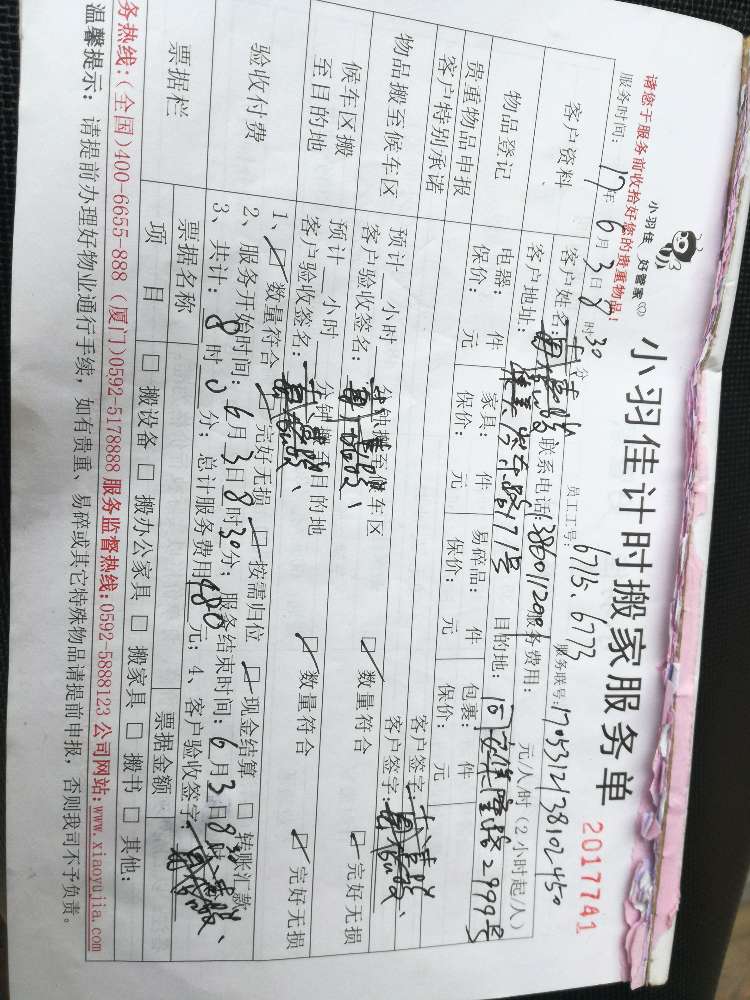 请您于服务前收拾好您的贵重物品!
小羽佳 好管家
小羽佳计时搬家服务单
2017741
服务时间: 17年6月3日8时30分
员工工号: 6715、6773
服务联号: 1705312138102450
客户资料
客户姓名:
联系电话:
服务费用: 元/人/时(2小时起/人)
客户地址:
目的地:
物品登记
电器: 件 家具: 件 易碎品: 件 包裹: 件
保价: 元 保价: 元 保价: 元 保价: 元
贵重物品申报
客户特别承诺
客户签字:
客户签字:
物品搬至候车区
预计 小时 分钟搬至候车区
客户验收签名:
数量符合 完好无损
候车区搬
至目的地
预计 小时 分钟搬到目的地
客户验收签名:
数量符合 完好无损
验收付费
1、 数量符合 完好无损 按需归位 现金结算 转账汇款
2、服务开始时间: 6月3日8时30分; 服务结束时间: 6月3日8时
3、共计: 8时0分; 总计服务费用 980元; 4、客户验收签字:
票据栏
票据名称 票据金额
项 目
搬设备 搬办公家具 搬家具 搬书 其他:
务热线:(全国)400-6655-888 (厦门)0592-5178888 服务监督热线:0592-5888123 公司网站:www.xiaoyujia.com
温馨提示: 请提前办理好物业通行手续, 如有贵重、易碎或其它特殊物品请提前申报, 否则我司不予负责。